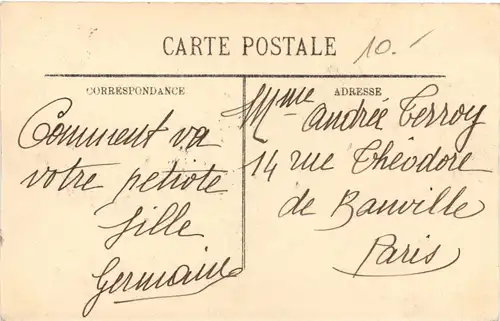 CARTE POSTALE
10.-
CORRESPONDANCE
Comment va
votre petiote
fille
Germaine
ADRESSE
Mme Andrée Terroy
14 rue Théodore
de Banville
Paris